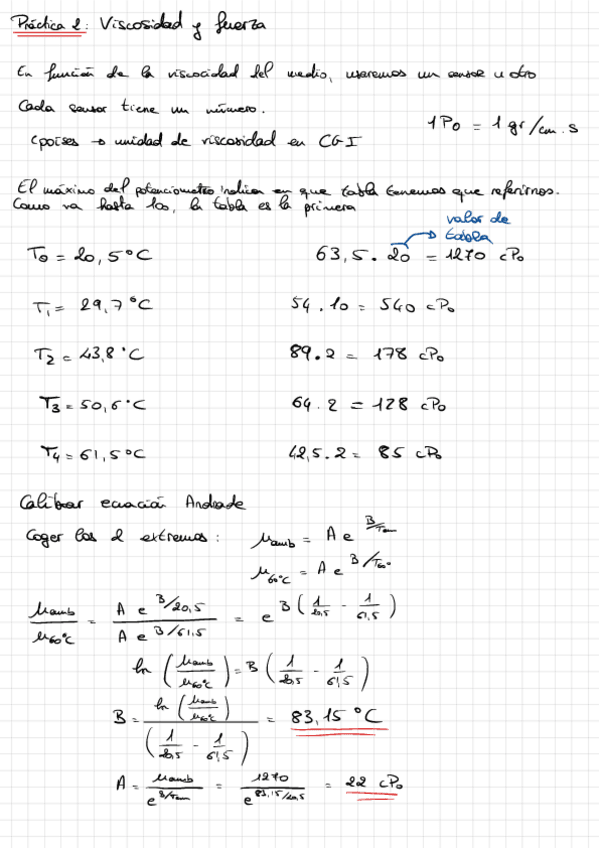 Práctica 2: Viscosidad y fuerza
En función de la viscocidad del medio, usaremos un sensor u otro
Cada sensor tiene un número.
1 Po = 1 gr/cm.s
cpoises → unidad de viscosidad en CGI
El máximo del potenciometro indica en que tabla tenemos que referirnos.
Como va hasta 100, la tabla es la primera
valor de tabla
T0 = 20,5°C 63,5 . 20 = 1270 cPo
T1 = 29,7°C 54 . 10 = 540 cPo
T2 = 43,8°C 89.2 = 178 cPo
T3 = 50,6°C 64.2 = 128 cPo
T4 = 61,5°C 42,5.2 = 85 cPo
Calibrar ecuación Andrade
Coger los 2 extremos: μamb = A e^B/Tam
μ60°C = A e^B/T60°
μamb/μ60°C = A e^B/20,5 / A e^B/61,5 = e^B(1/20,5 - 1/61,5)
ln (μamb/μ60°C) = B (1/20,5 - 1/61,5)
B = ln (μamb/μ60°C) / (1/20,5 - 1/61,5) = 83,15 °C
A = μamb / e^B/Tam = 1270 / e^83,15/20,5 = 22 cPo